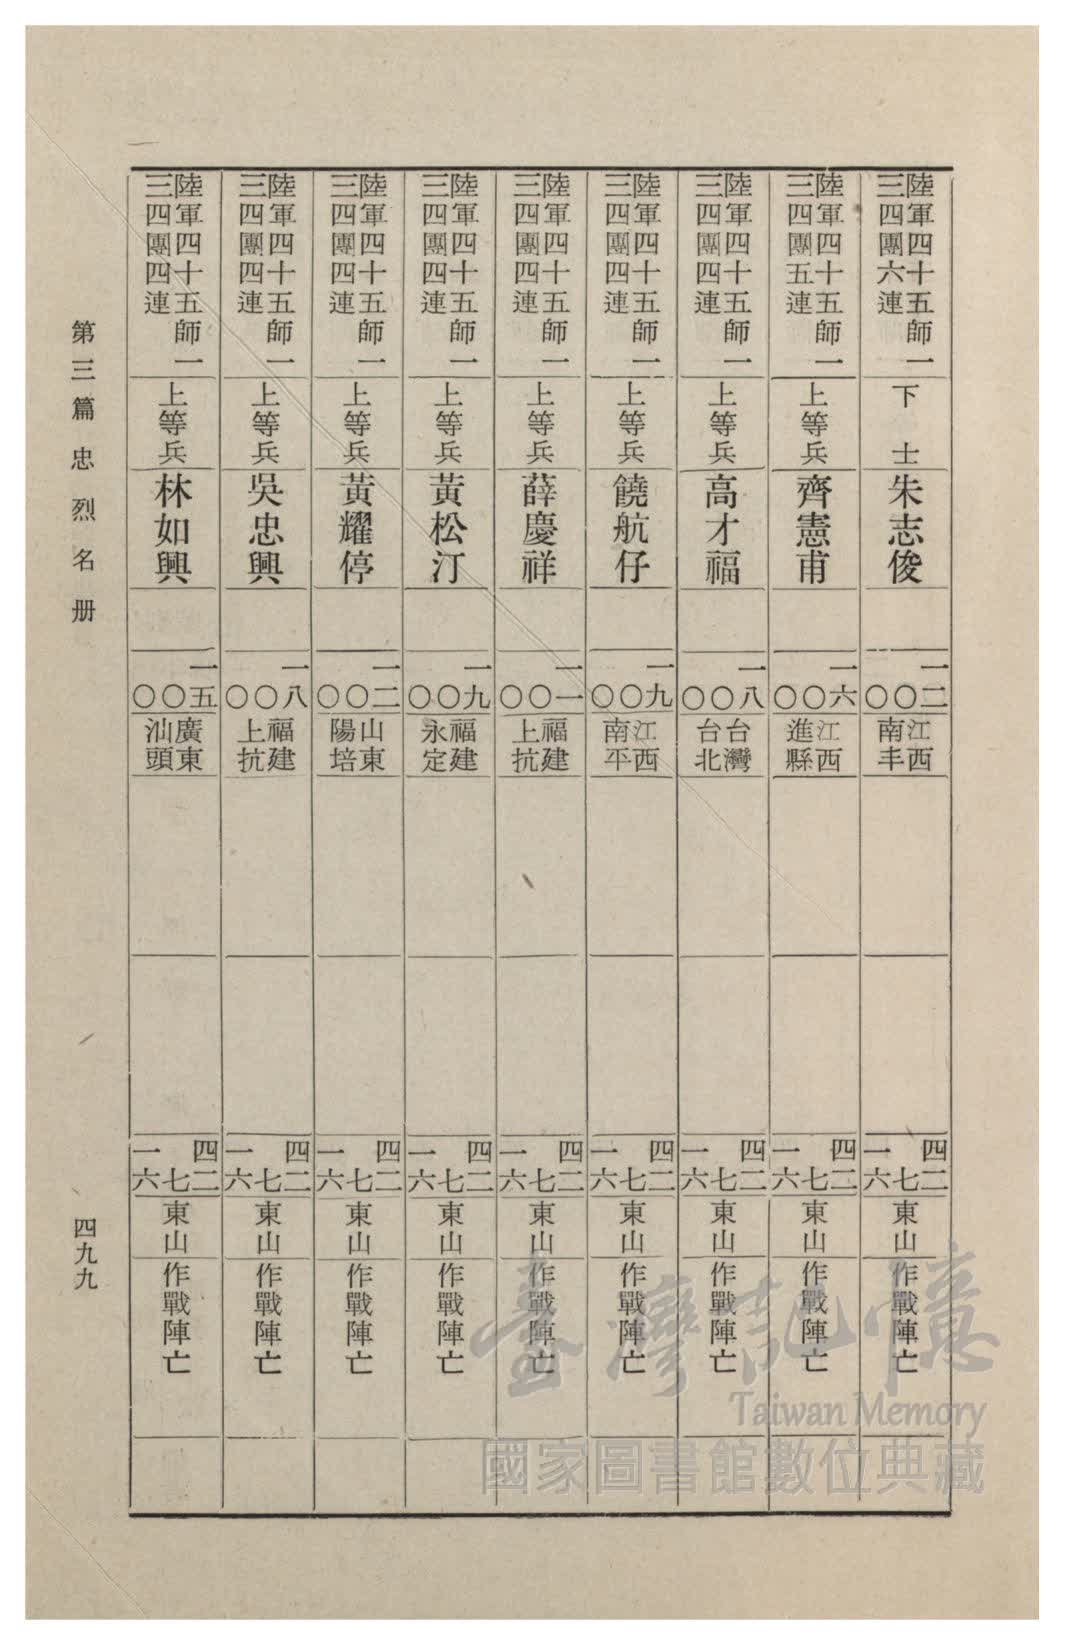 陸軍四十五師一
三四團六連
下士
朱志俊
一二
○
○
江西
南丰
四二
七
一六
東山
作戰陣亡
陸軍四十五師一
三四團五連
上等兵
齊憲甫
一六
○
○
江西
進縣
四二
七
一六
東山
作戰陣亡
陸軍四十五師一
三四團四連
上等兵
高才福
一八
○
○
台灣
台北
四二
七
一六
東山
作戰陣亡
陸軍四十五師一
三四團四連
上等兵
饒航仔
一九
○
○
江西
南平
四二
七
一六
東山
作戰陣亡
陸軍四十五師一
三四團四連
上等兵
薛慶祥
一一
○
○
福建
上抗
四二
七
一六
東山
作戰陣亡
陸軍四十五師一
三四團四連
上等兵
黃松汀
一九
○
○
福建
永定
四二
七
一六
東山
作戰陣亡
陸軍四十五師一
三四團四連
上等兵
黃耀停
一二
○
○
山東
陽培
四二
七
一六
東山
作戰陣亡
陸軍四十五師一
三四團四連
上等兵
吳忠興
一八
○
○
福建
上抗
四二
七
一六
東山
作戰陣亡
陸軍四十五師一
三四團四連
上等兵
林如興
一五
○
○
廣東
汕頭
四二
七
一六
東山
作戰陣亡
第三篇 忠烈名册
四九九
臺灣記憶
Taiwan Memory
國家圖書館數位典藏